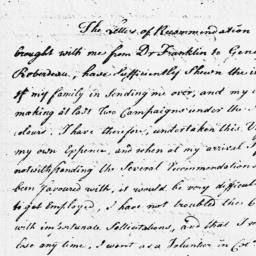 The Letters of Recommendation
brought with me from Dr Franklin to Gene
Roberdeau, have sufficiently Shewn the i
of my family in Sending me over, and my
making it last Two Campaigns under the
colours. I have therefore, undertaken this V
my own Expence, and when at my arrival I
notwithstanding the Several Recommendations
been favoured with, it would be very difficult
to get employed, I have not troubled the C
with importunate Sollicitations, and that I m
lose any time, I went as a Volunteer in Col